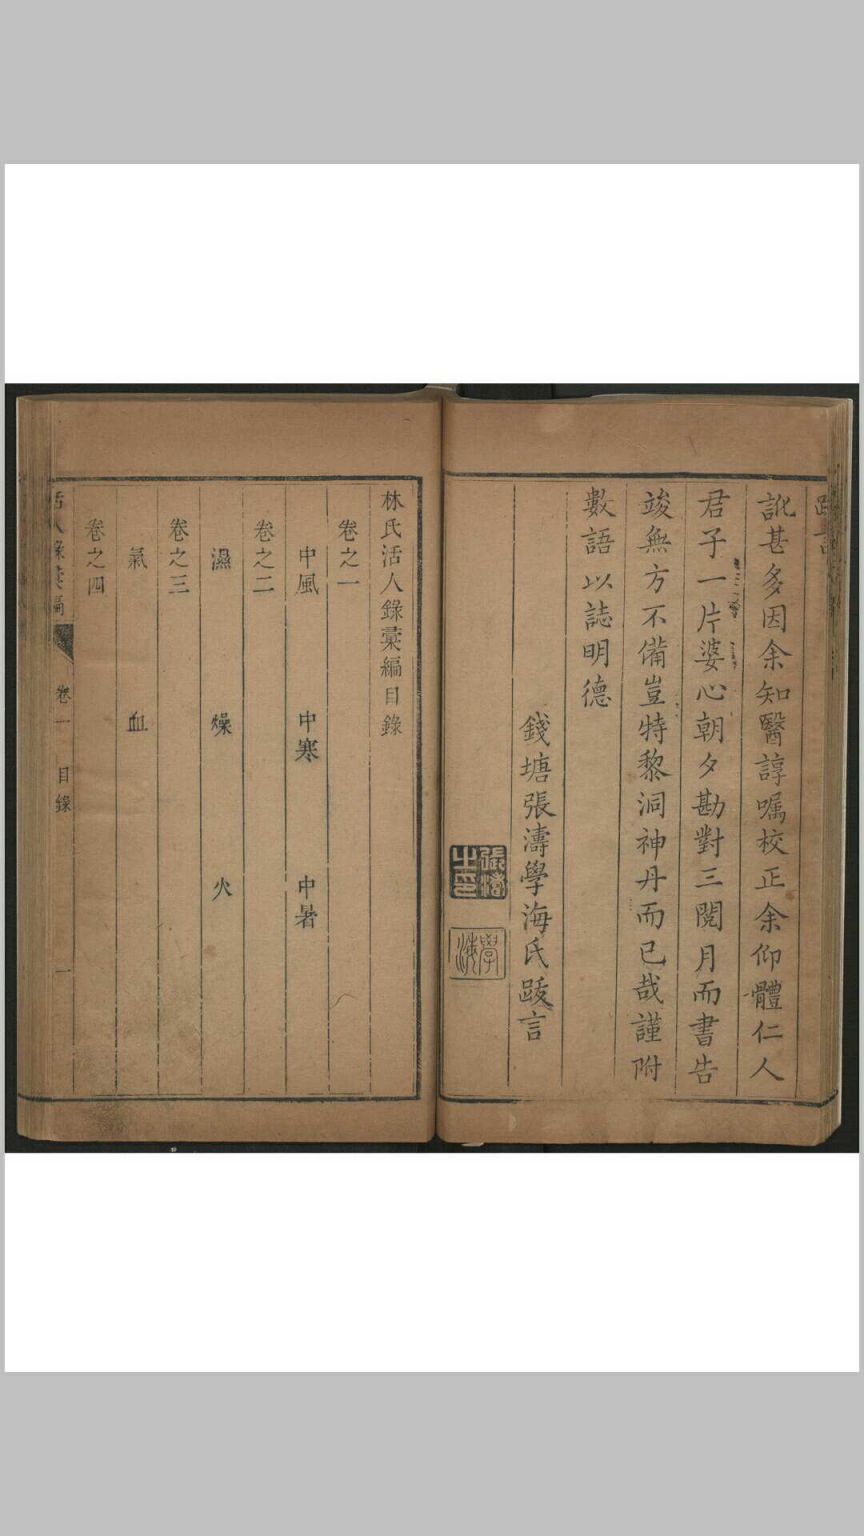 跋言
訛甚多因余知醫諄囑校正余仰體仁人
君子一片婆心朝夕勘對三閱月而書告
竣無方不備豈特黎洞神丹而已哉謹附
數語以誌明德
錢塘張濤學海氏跋言
張濤之印
學海
林氏活人錄彙編目錄
卷之一
中風 中寒 中暑
卷之二
濕 燥 火
卷之三
氣 血
卷之四
活人錄彙編 卷一 目錄 一